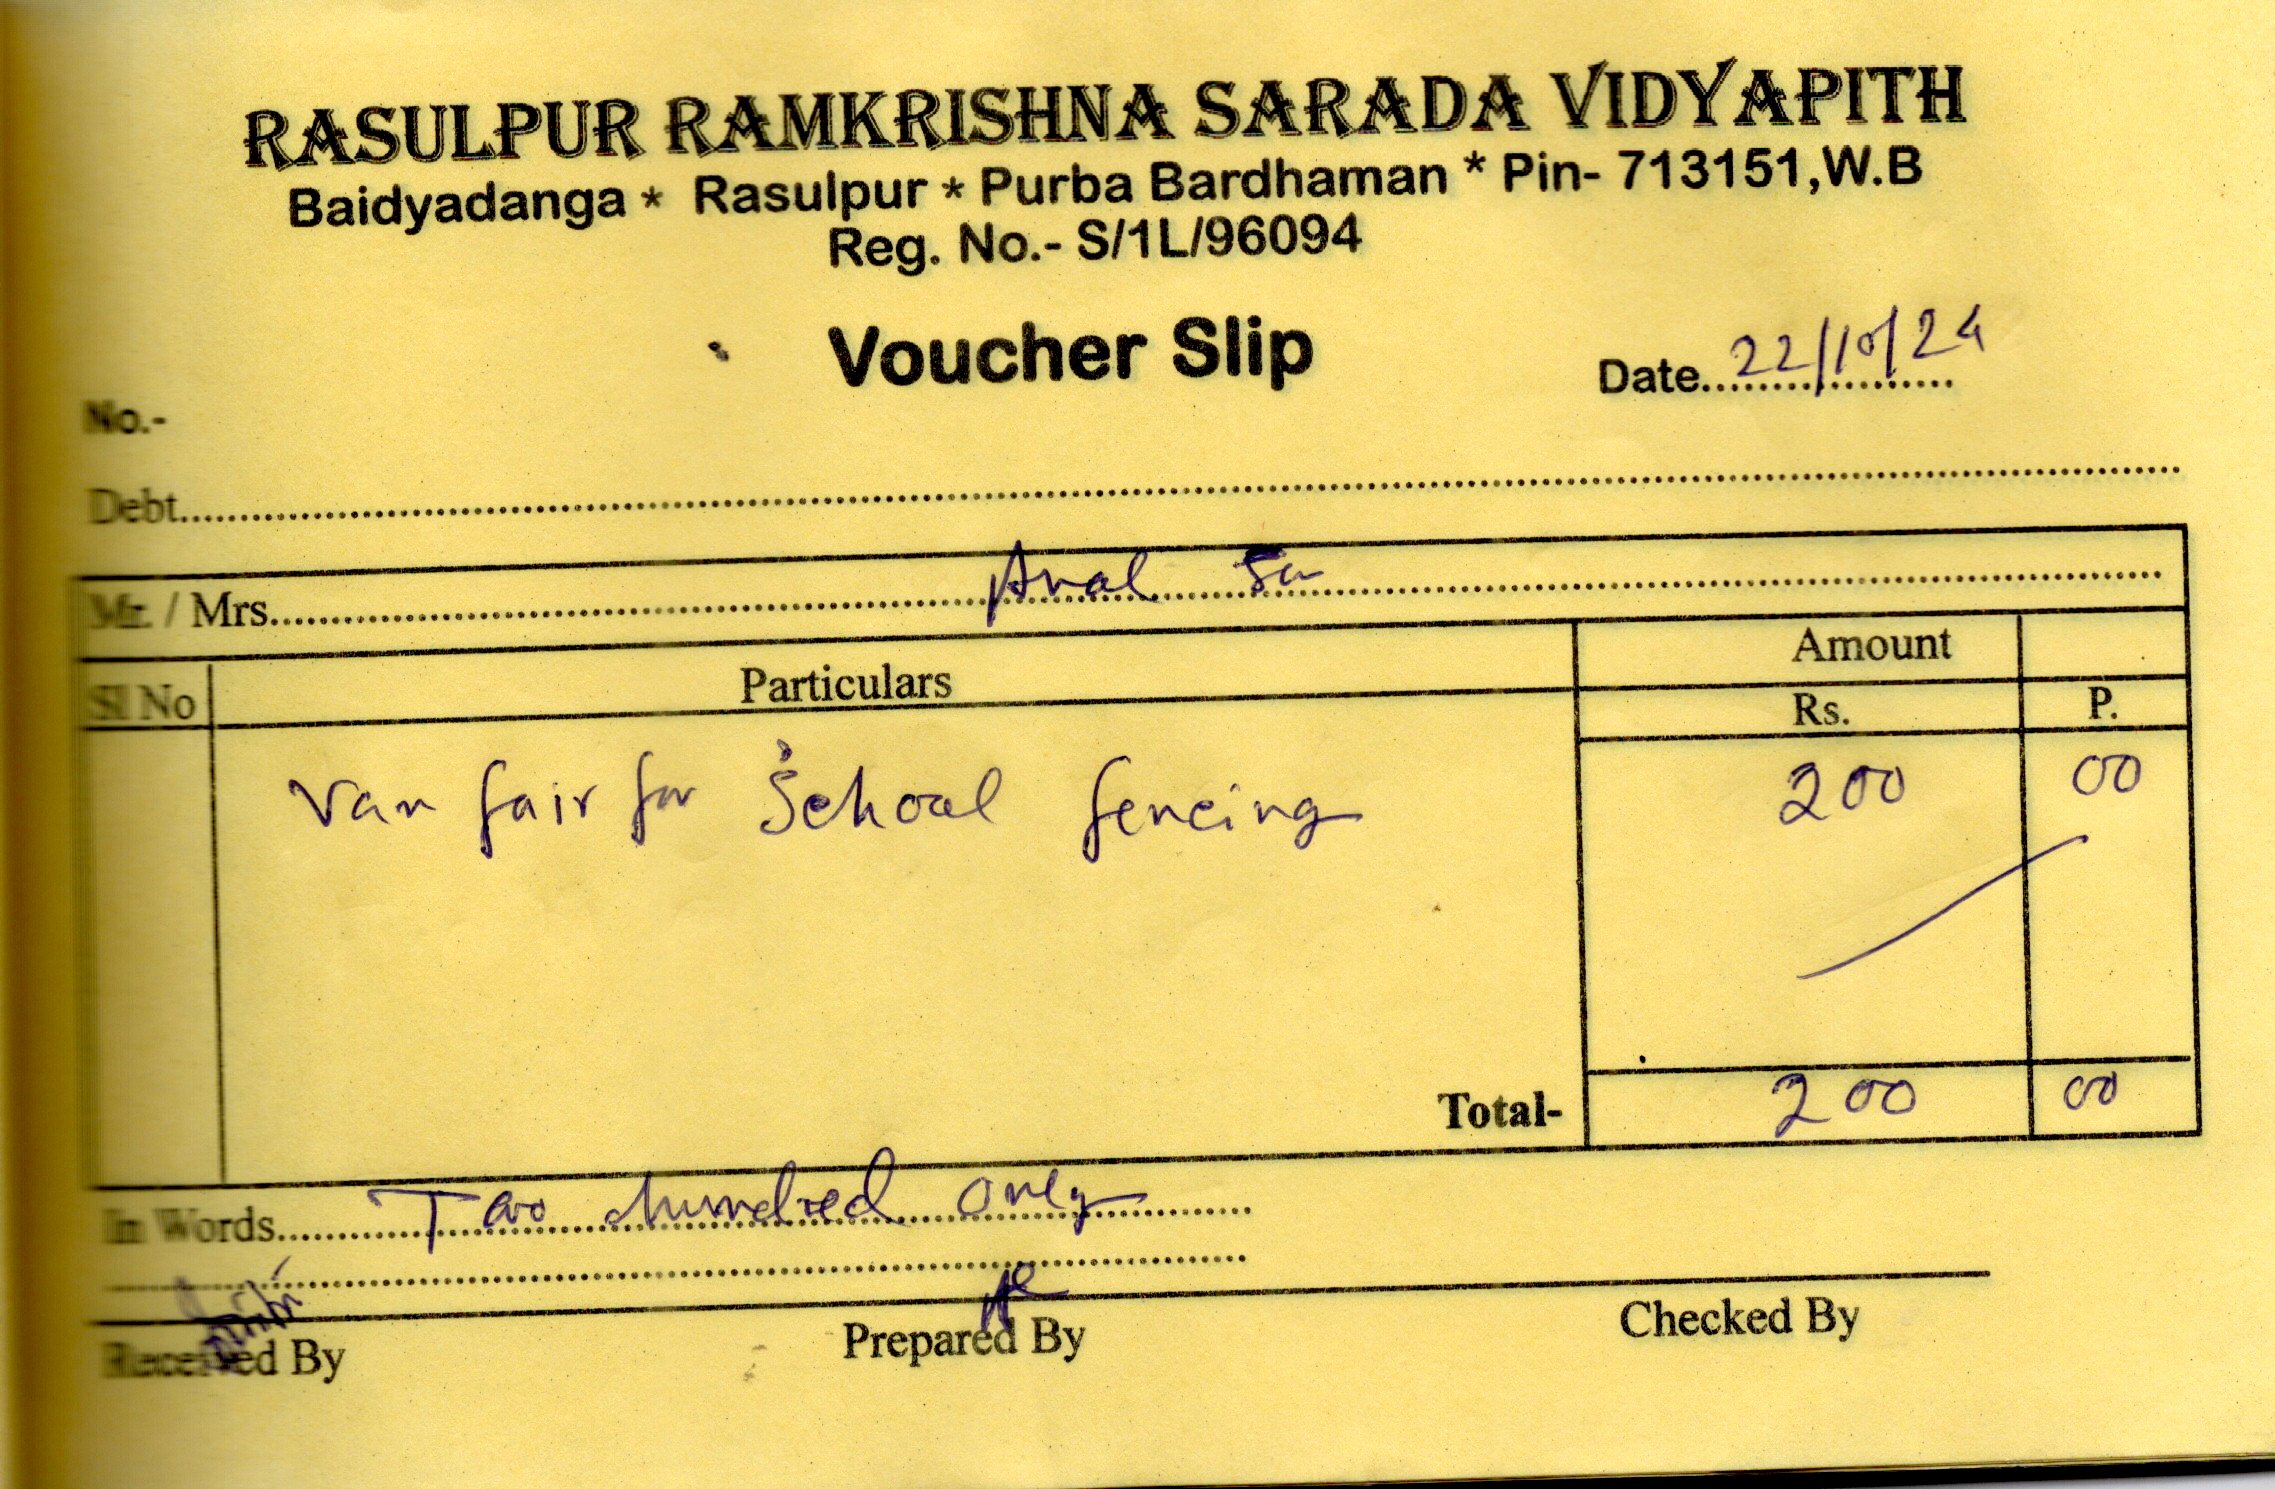 RASULPUR RAMKRISHNA SARADA VIDYAPITH
Baidyadanga * Rasulpur * Purba Bardhaman * Pin- 713151,W.B
Reg. No.- S/1L/96094
Voucher Slip
Date 22/10/24
No.-
Debt
Mr. / Mrs.
Sl No Particulars Amount
Rs. P.
Van fair for School fencing 200 00
Total- 200 00
In Words Two hundred only
Received By Prepared By Checked By